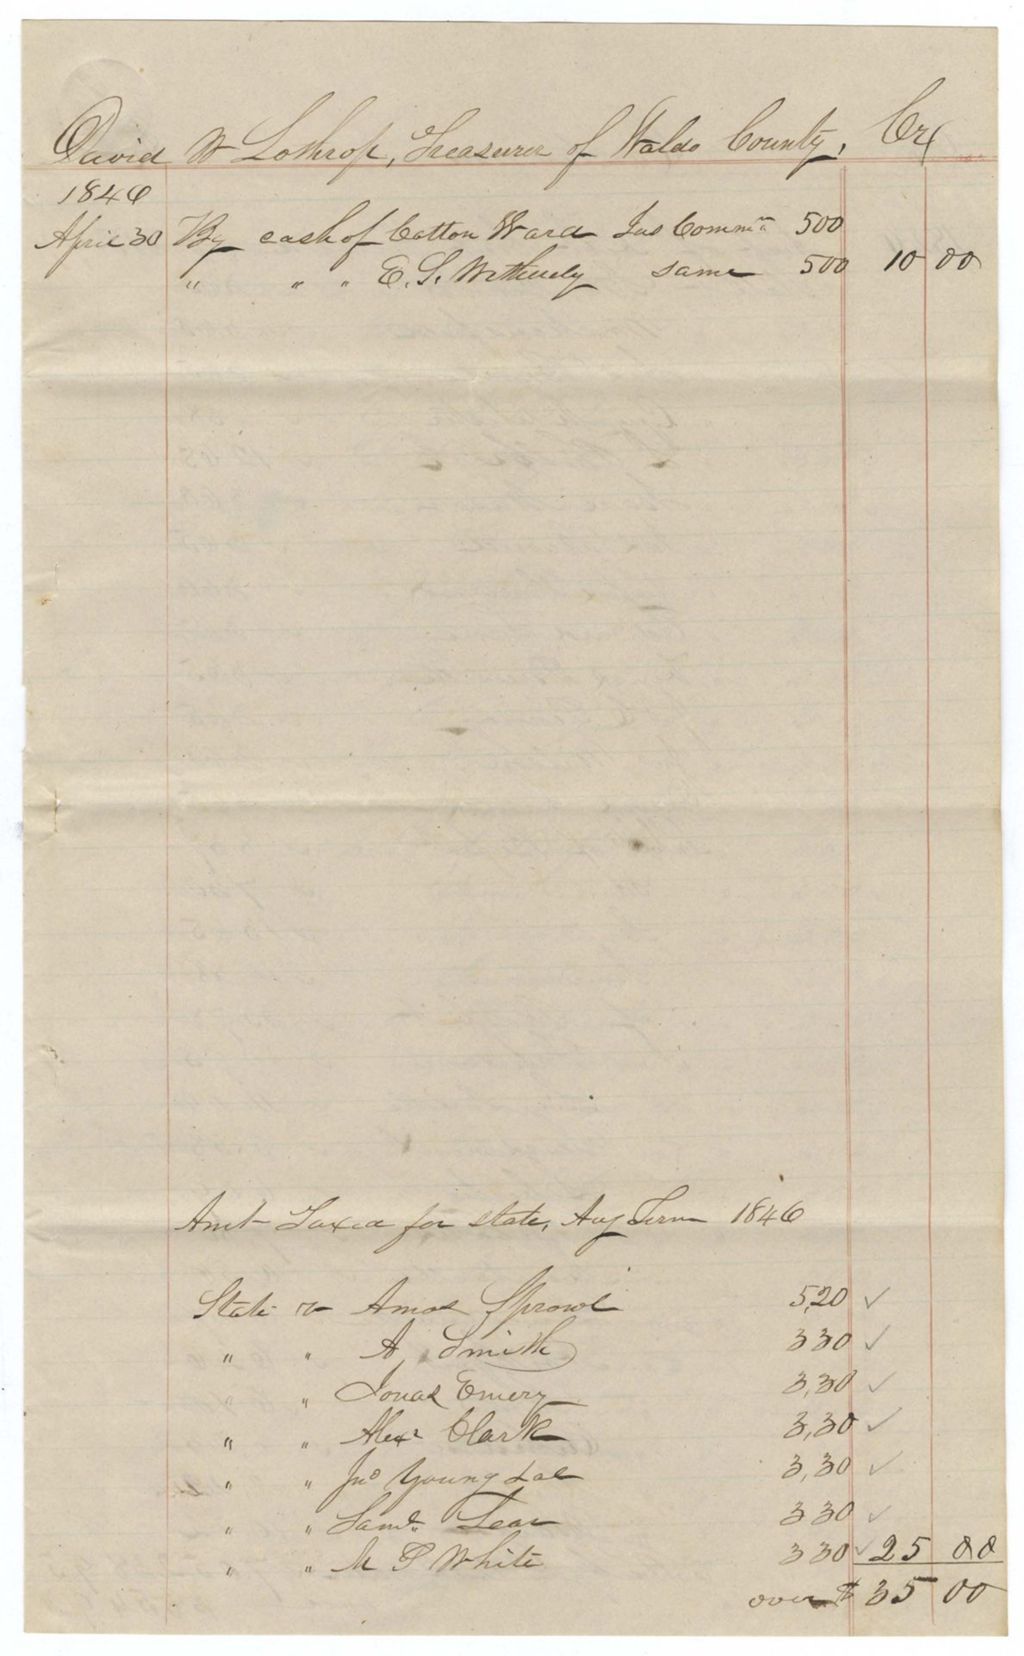 David W Lothrop, Treasurer of Waldo County, Cr
1846
April 30 By cash of Cotton Ward Jus Commn 500
" " " E. S. Wetherly same 500 10 00
Amt Taxed for state, Aug Term 1846
State v Amos Sprowl 5,20 ✓
" " A, Smith 330 ✓
" " Jonas Emery 3,30 ✓
" " Alexr Clark 3,30 ✓
" " Jno Young 2al 3,30 ✓
" " Saml. Lear 330 ✓
" " M P White 330 ✓ 25 00
over $ 35 00